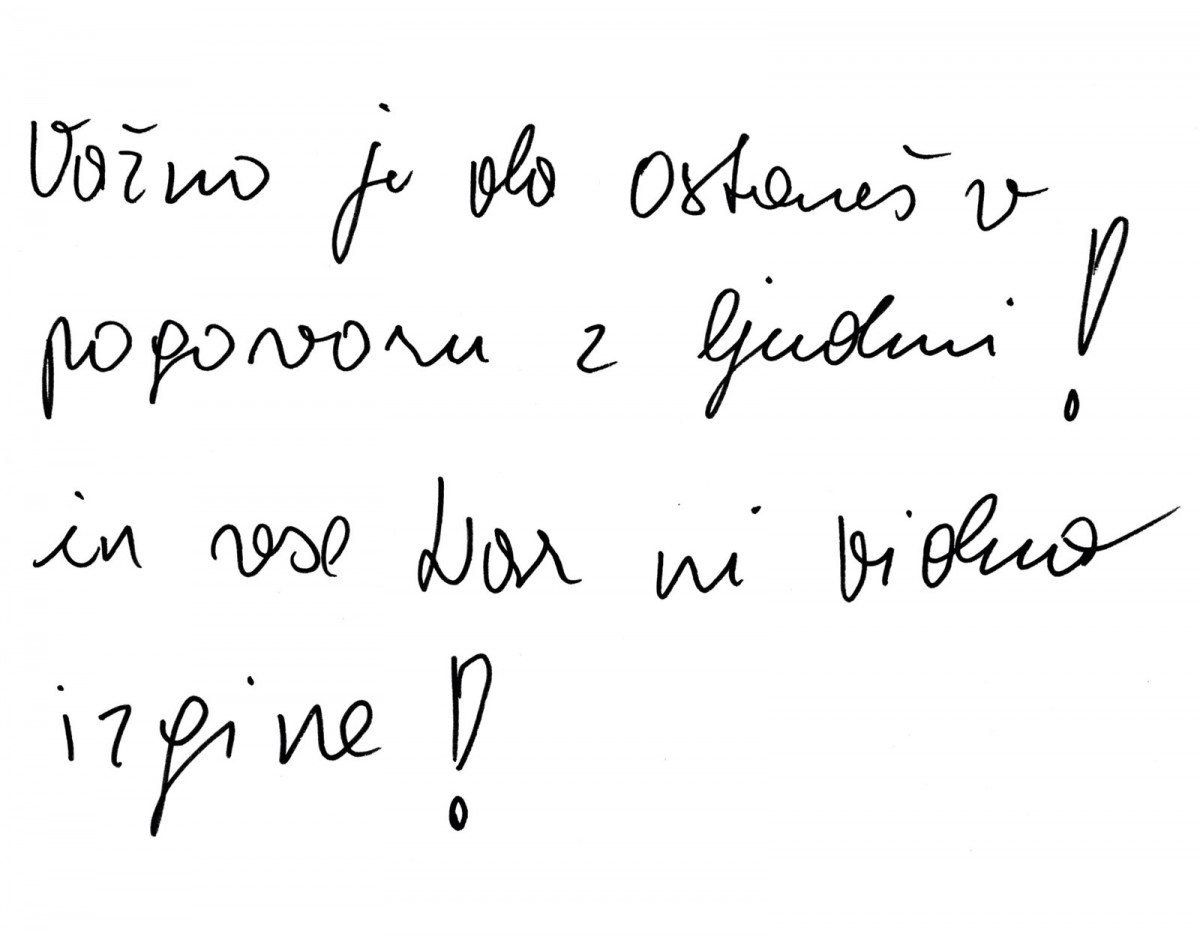 Važno je da ostaneš v
pogovoru z ljudmi!
in vse kar ni vidno
izgine!